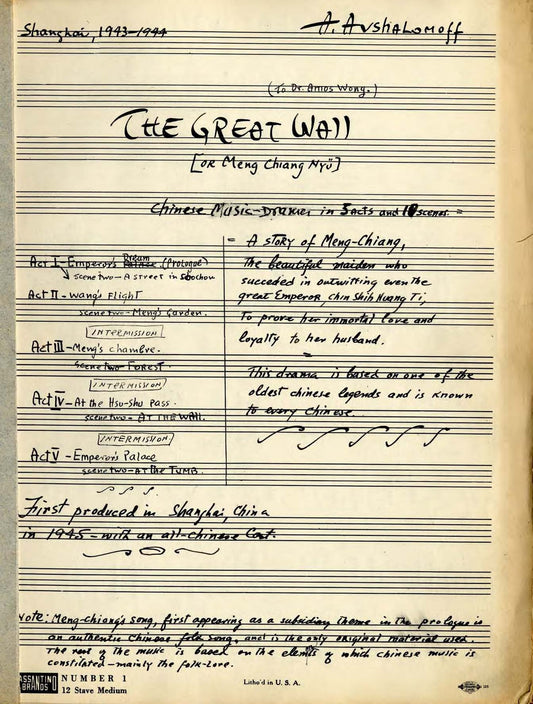 Shanghai, 1943-1944
A. AVSHALOMOFF
(To Dr. Amos Wong.)
THE GREAT WALL
[OR Meng Chiang Nyü]
Chinese Music-Drama in 5 ACTS and 10 scenes. =
Act I - Emperor's Dream (Prologue)
scene two - A street in Soochow
Act II - Wang's Flight
scene two - Meng's Garden.
[INTERMISSION]
Act III - Meng's chambre.
scene two - FOREST.
[INTERMISSION]
Act IV - At the Hsu-Shu Pass.
scene two - AT THE WALL.
[INTERMISSION]
Act V - Emperor's Palace
scene two - AT the TUMB.
= A story of Meng-Chiang,
the beautiful maiden who
succeded in outwitting even the
great Emperor, Chin Shih Huang Ti,
to prove her immortal love and
loyalty to her husband.
This drama is based on one of the
oldest chinese legends and is known
to every chinese.
First produced in Shanghai, China
in 1945 - with an all-chinese Cast.
Note: Meng-Chiang's song, first appearing as a subsidiary theme in the prologue is
an authentic Chinese folk song, and is the only original material used.
The rest of the music is based on the elem'ts of which chinese music is
constituted - mainly the folk-lore.
ASSANTINO
BRANDS
NUMBER 1
12 Stave Medium
Litho'd in U. S. A.